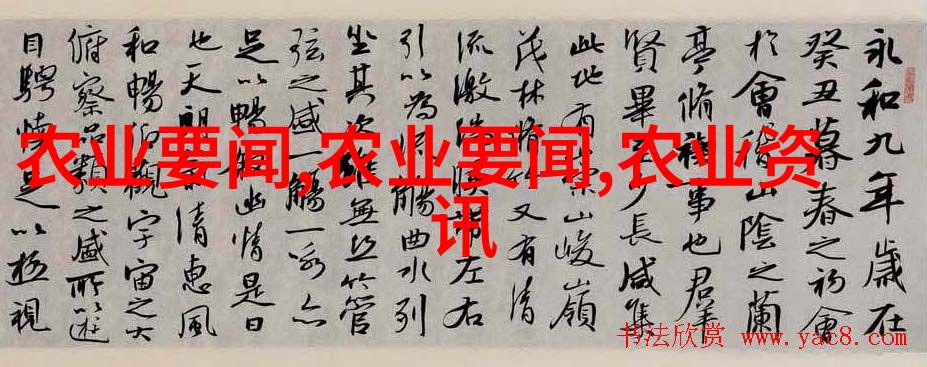 永和九年歲在
癸丑暮春之初會
於會稽山陰之蘭
亭脩禊事也羣
賢畢至少長咸集
此地有崇山峻嶺
茂林脩竹又有清
流激湍暎帶左右
引以為流觴曲水列
坐其次雖無絲竹管
弦之盛一觴一詠亦
足以暢敘幽情是日
也天朗氣清惠風
和暢仰觀宇宙之大
俯察品類之盛所以遊
目騁懷足以極視
农业要闻,农业要闻,农业资
讯
书法欣赏 www.yac8.com